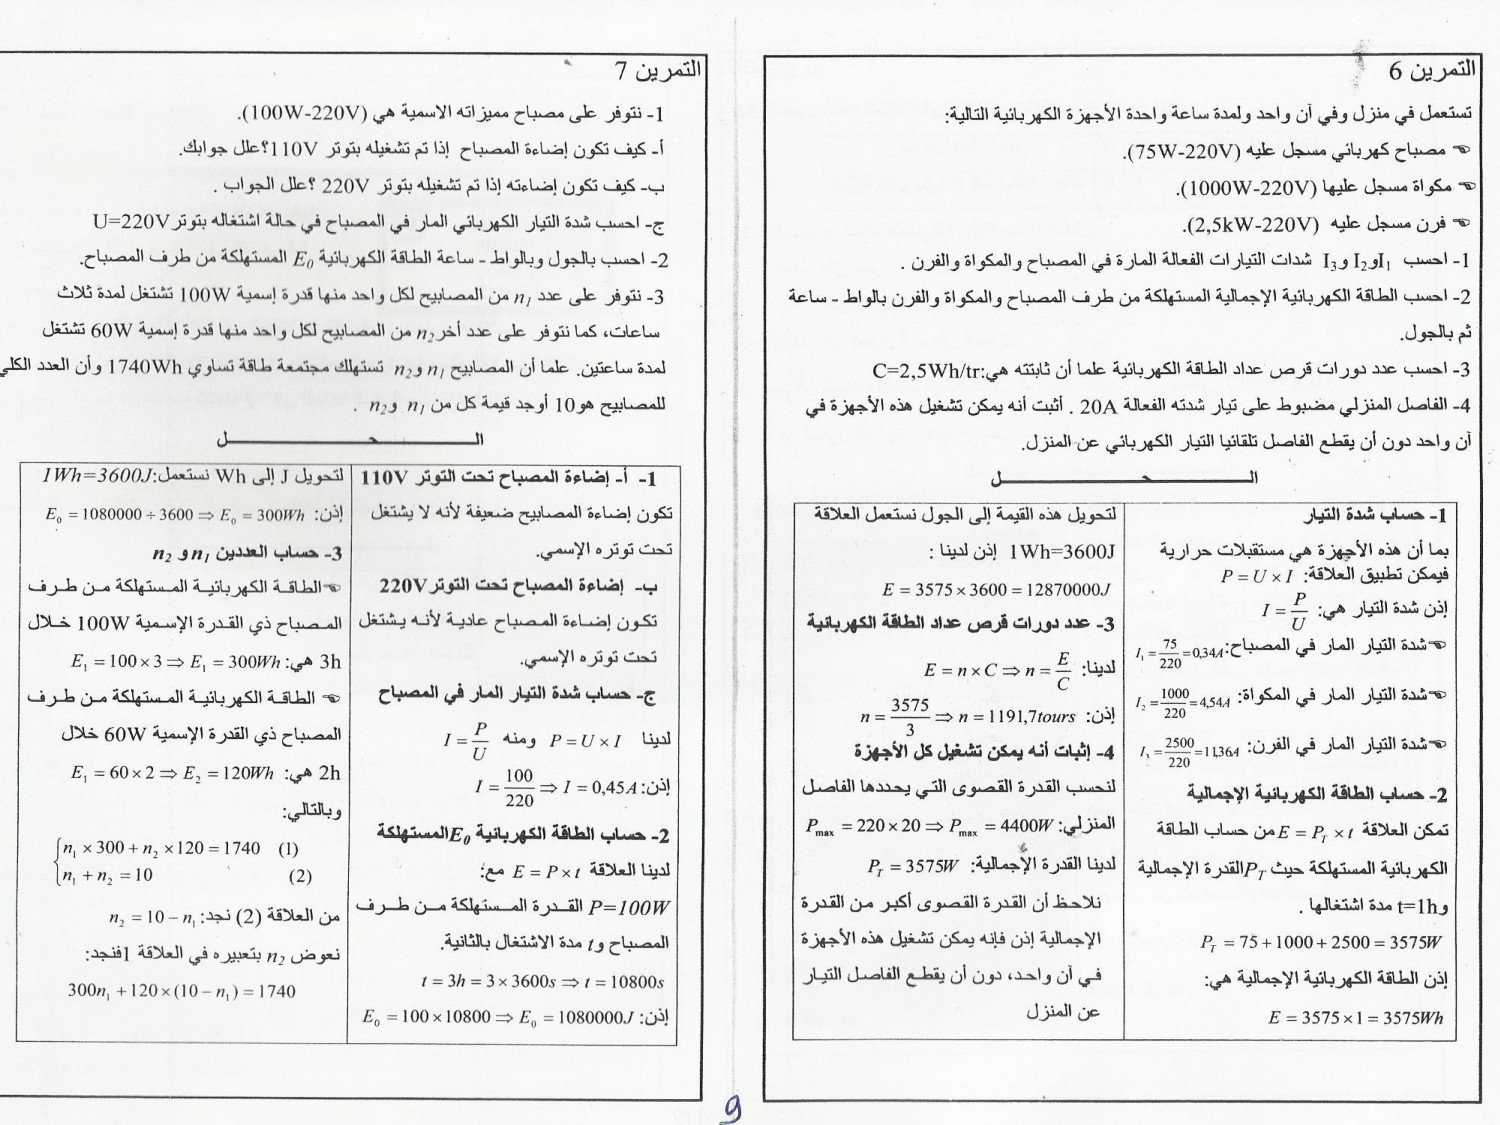 التمرين 6
تستعمل في منزل وفي آن واحد ولمدة ساعة واحدة الأجهزة الكهربائية التالية:
☜ مصباح كهربائي مسجل عليه (75W-220V).
☜ مكواة مسجل عليها (1000W-220V).
☜ فرن مسجل عليه (2,5kW-220V).
1- احسب I₁ وI₂ وI₃ شدات التيارات الفعالة المارة في المصباح والمكواة والفرن .
2- احسب الطاقة الكهربائية الإجمالية المستهلكة من طرف المصباح والمكواة والفرن بالواط - ساعة
ثم بالجول.
3- احسب عدد دورات قرص عداد الطاقة الكهربائية علما أن ثابتته هي:C=2,5Wh/tr
4- الفاصل المنزلي مضبوط على تيار شدته الفعالة 20A . أثبت أنه يمكن تشغيل هذه الأجهزة في
آن واحد دون أن يقطع الفاصل تلقائيا التيار الكهربائي عن المنزل.
الـــحـــل
1- حساب شدة التيار
بما أن هذه الأجهزة هي مستقبلات حرارية
فيمكن تطبيق العلاقة: P = U × I
إذن شدة التيار هي: I = P/U
☜شدة التيار المار في المصباح: I₁ = 75/220 = 0,34A
☜شدة التيار المار في المكواة: I₂ = 1000/220 = 4,54A
☜شدة التيار المار في الفرن: I₃ = 2500/220 = 11,36A
2- حساب الطاقة الكهربائية الإجمالية
تمكن العلاقة E = P_T × t من حساب الطاقة
الكهربائية المستهلكة حيث P_T القدرة الإجمالية
وt=1h مدة اشتغالها .
P_T = 75 + 1000 + 2500 = 3575W
إذن الطاقة الكهربائية الإجمالية هي:
E = 3575 × 1 = 3575Wh
لتحويل هذه القيمة إلى الجول نستعمل العلاقة
1Wh=3600J إذن لدينا :
E = 3575 × 3600 = 12870000J
3- عدد دورات قرص عداد الطاقة الكهربائية
لدينا: E = n × C ⇒ n = E/C
إذن: n = 3575/3 ⇒ n = 1191,7tours
4- إثبات أنه يمكن تشغيل كل الأجهزة
لنحسب القدرة القصوى التي يحددها الفاصل
المنزلي: P_max = 220 × 20 ⇒ P_max = 4400W
لدينا القدرة الإجمالية: P_T = 3575W
نلاحظ أن القدرة القصوى أكبر من القدرة
الإجمالية إذن فإنه يمكن تشغيل هذه الأجهزة
في آن واحد، دون أن يقطع الفاصل التيار
عن المنزل
التمرين 7
1- نتوفر على مصباح مميزاته الاسمية هي (100W-220V).
أ- كيف تكون إضاءة المصباح إذا تم تشغيله بتوتر 110V؟علل جوابك.
ب- كيف تكون إضاءته إذا تم تشغيله بتوتر 220V ؟علل الجواب .
ج- احسب شدة التيار الكهربائي المار في المصباح في حالة اشتغاله بتوتر U=220V
2- احسب بالجول وبالواط - ساعة الطاقة الكهربائية E₀ المستهلكة من طرف المصباح.
3- نتوفر على عدد n₁ من المصابيح لكل واحد منها قدرة إسمية 100W تشتغل لمدة ثلاث
ساعات، كما نتوفر على عدد أخر n₂ من المصابيح لكل واحد منها قدرة إسمية 60W تشتغل
لمدة ساعتين. علما أن المصابيح n₁ وn₂ تستهلك مجتمعة طاقة تساوي 1740Wh وأن العدد الكلي
للمصابيح هو10 أوجد قيمة كل من n₁ وn₂ .
الـــحـــل
1- أ- إضاءة المصباح تحت التوتر 110V
تكون إضاءة المصابيح ضعيفة لأنه لا يشتغل
تحت توتره الإسمي.
ب- إضاءة المصباح تحت التوتر220V
تكون إضاءة المصباح عادية لأنه يشتغل
تحت توتره الإسمي.
ج- حساب شدة التيار المار في المصباح
لدينا P = U × I ومنه I = P/U
إذن: I = 100/220 ⇒ I = 0,45A
2- حساب الطاقة الكهربائية E₀ المستهلكة
لدينا العلاقة E = P × t مع:
P=100W القدرة المستهلكة من طرف
المصباح وt مدة الاشتغال بالثانية.
t = 3h = 3 × 3600s ⇒ t = 10800s
إذن: E₀ = 100 × 10800 ⇒ E₀ = 1080000J
لتحويل J إلى Wh نستعمل:1Wh=3600J
إذن: E₀ = 1080000 ÷ 3600 ⇒ E₀ = 300Wh
3- حساب العددين n₁ و n₂
☜الطاقة الكهربائية المستهلكة من طرف
المصباح ذي القدرة الإسمية 100W خلال
3h هي: E₁ = 100 × 3 ⇒ E₁ = 300Wh
☜ الطاقة الكهربائية المستهلكة من طرف
المصباح ذي القدرة الإسمية 60W خلال
2h هي: E₁ = 60 × 2 ⇒ E₂ = 120Wh
وبالتالي:
n₁ × 300 + n₂ × 120 = 1740 (1)
n₁ + n₂ = 10 (2)
من العلاقة (2) نجد: n₂ = 10 − n₁
نعوض n₂ بتعبيره في العلاقة 1فنجد:
300n₁ + 120 × (10 − n₁) = 1740
9